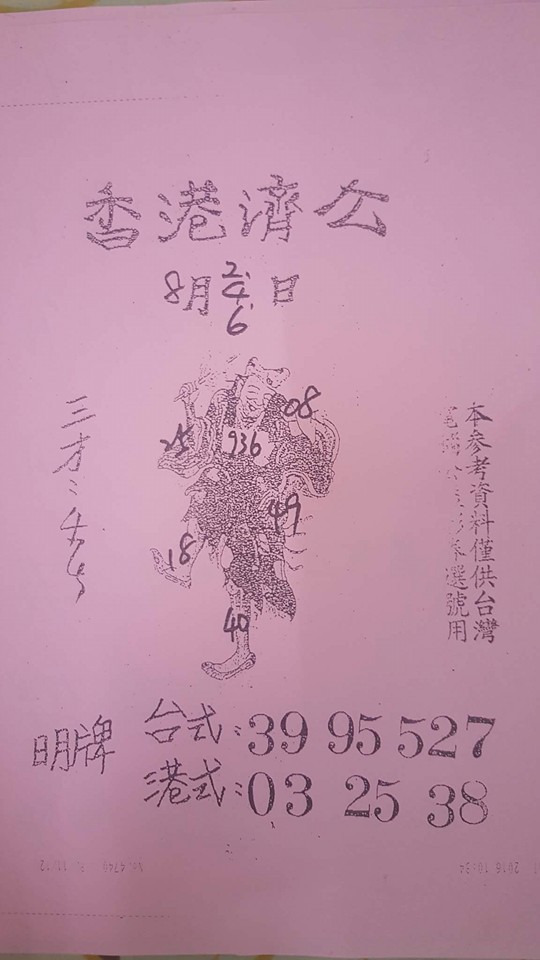 香港濟公
8月2.4.6日
本參考資料僅供台灣
選號用
三才:
08
25
936
49
18
40
明牌
台式:39 95 527
港式:03 25 38